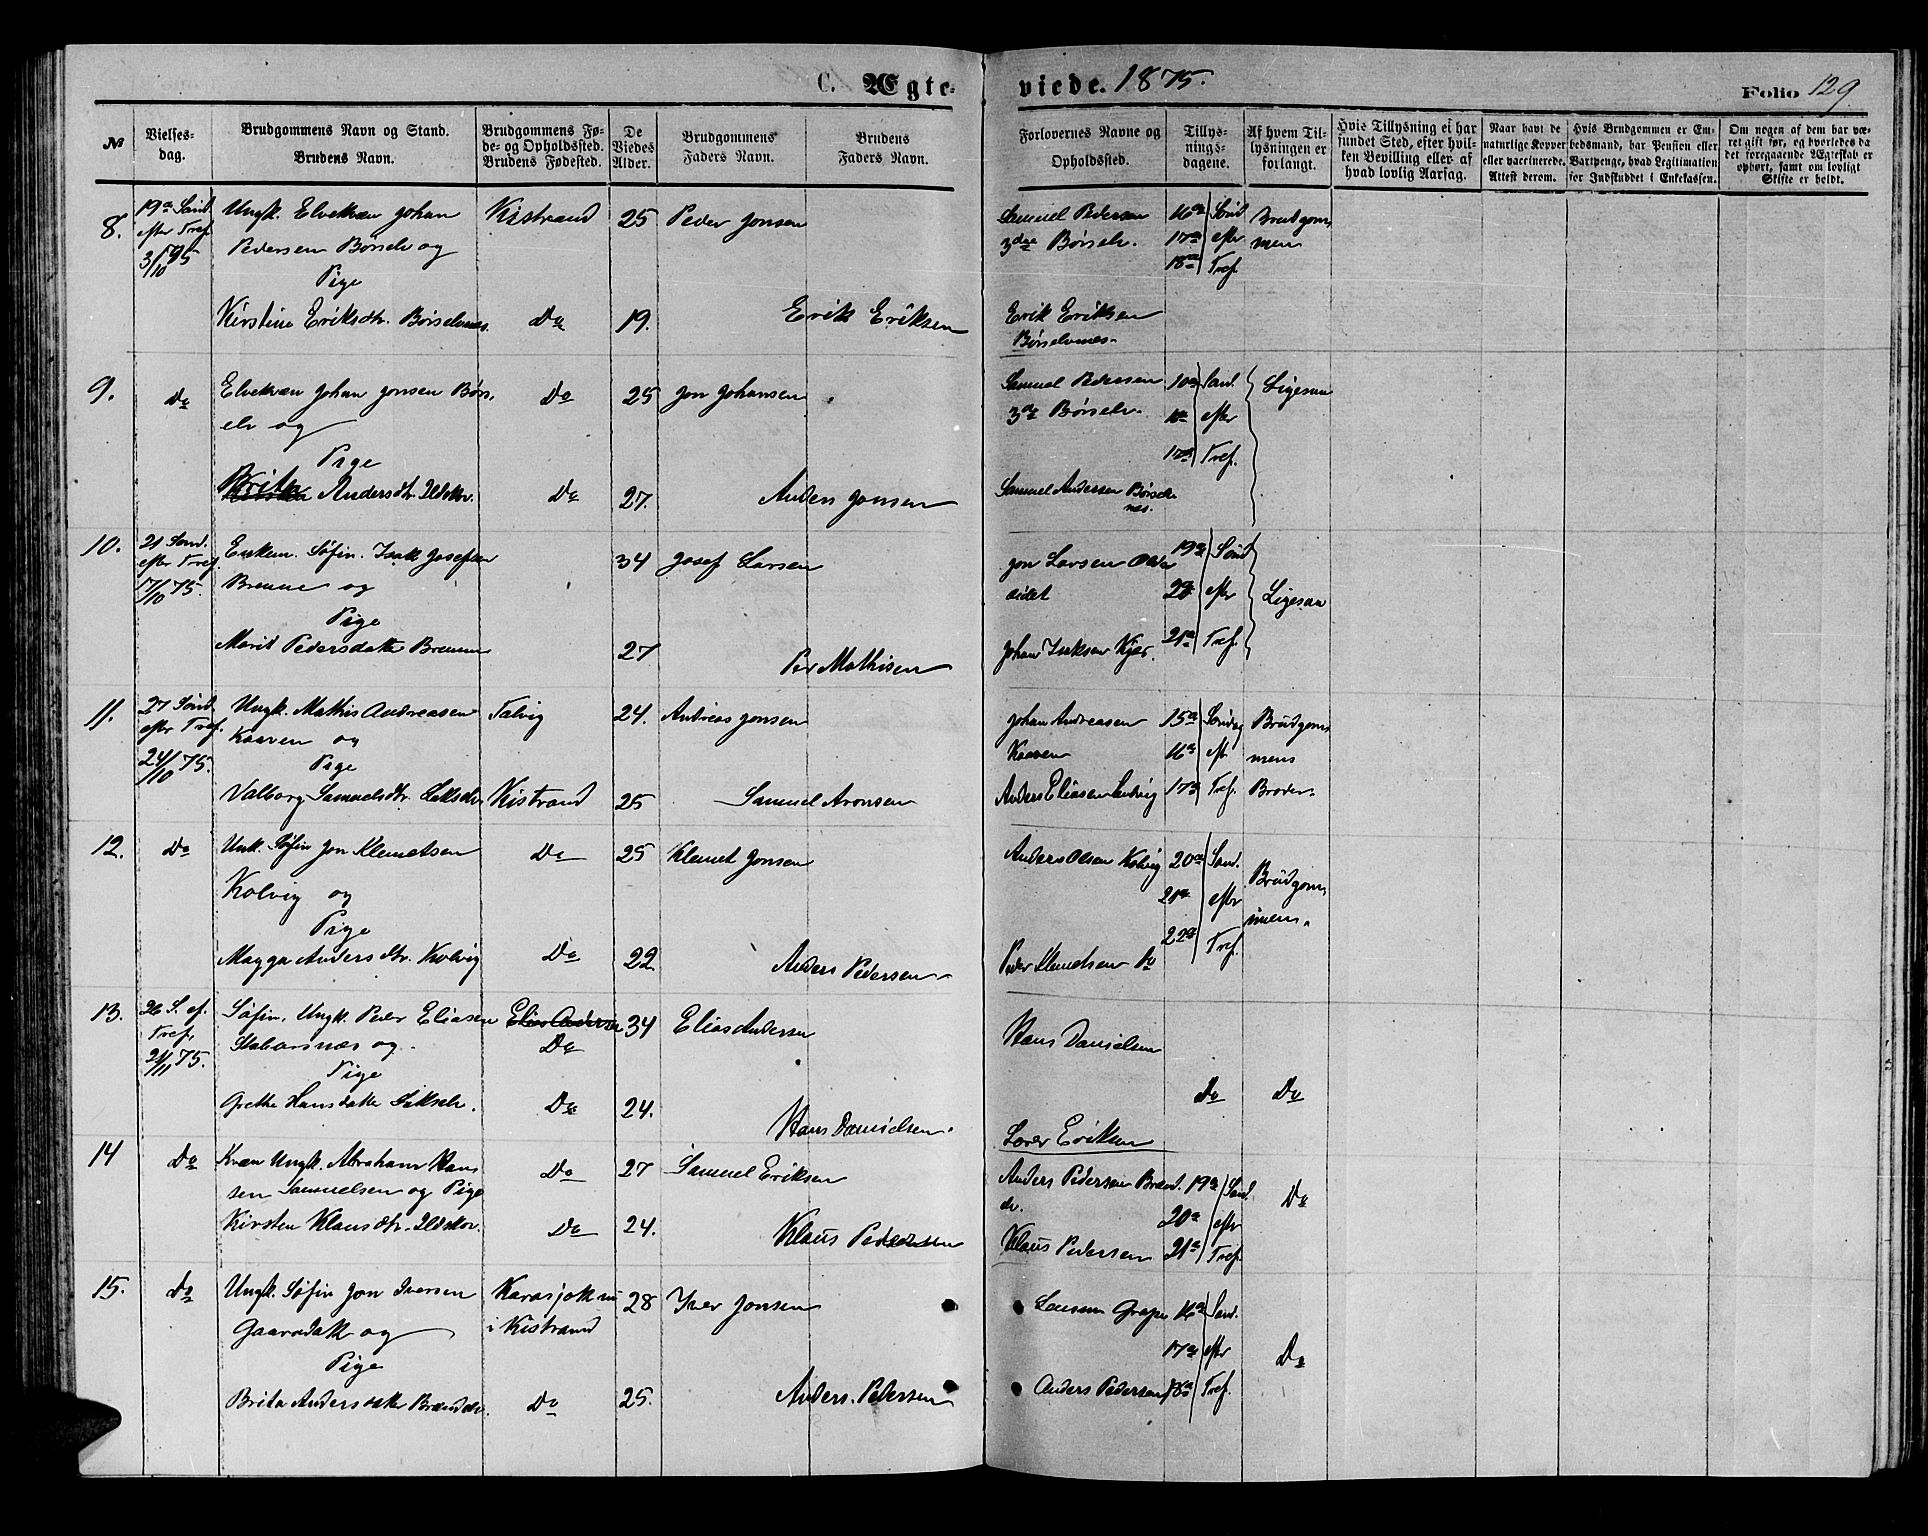 C. Ægte-
viede. 1875.
Folio 129
№
Vielses-
dag.
Brudgommens Navn og Stand.
Brudens Navn.
Brudgommens Fø-
de- og Opholdssted.
Brudens Fødested.
De
Viedes
Alder.
Brudgommens
Faders Navn.
Brudens
Faders Navn.
Forlovernes Navne og
Opholdssted.
Tillys-
nings-
dagene.
Af hvem Til-
lysningen er
forlangt.
Hvis Tillysning ei har
fundet Sted, efter hvil-
ken Bevilling eller af
hvad lovlig Aarsag.
Naar havt de
naturlige Kopper
eller vaccinerede.
Attest derom.
Hvis Brudgommen er Em-
bedsmand, har Pension eller
Vartpenge, hvad Legitimation
for Indskuddet i Enkekassen.
Om nogen af dem har væ-
ret gift før, og hvorledes da
det foregaaende Ægteskab er
ophørt, samt om lovligt
Skifte er holdt.
8.
19de Sønd
efter Tref.
3/10 75
Ungk. Elvekvæn Johan
Pedersen Børselv og
Pige
Kirstine Eriksdtr. Børselvnes.
Kistrand
Do
25
19.
Peder Jonsen
Erik Eriksen
Samuel Pedersen
3die Børselv.
Erik Eriksen
Børselvnes.
16de Sønd
17de efter
18de Tref.
Brudgom-
men
9.
Do
Elvekvæn Johan Jonsen Børs-
elv og
Pige
Brita Andersdtr. Ildskor.
Do
Do
25
27.
Jon Johansen
Anders Jonsen
Samuel Pedersen
3de Børselv.
Samuel Andersen Børselv-
nes.
Sønd.
efter
17de Tref.
Ligesaa
10.
21 Sønd.
efter Tref.
17/10 75.
Enkem. Søfin. Isak Josefsen
Brenne og
Pige
Marit Pedersdatter Brenne
34
27
Josef Larsen
Per Mathisen
Jon Larsen
eidet
Johan Isaksen Kjæs.
19de Sønd
20 efter
21de Tref.
Ligesaa
11.
27 Sønd.
efter Tref.
24/10 75.
Ungk. Mathis Andreasen
Kaaven og
Pige
Valborg Samuelsdtr. Lakselv
Talvig
Kistrand
24.
25
Andreas Jonsen
Samuel Aronsen
Johan Andreasen
Kaaven
Anders Eliasen
15de Søndag
16de eft
17de Tref.
Brudgom-
mens
Broder.
12.
Do
Unk. Søfin Jon Klemetsen
Kolvig og
Pige
Magga Andersdtr. Kolvig
Do
Do
25
22
Klemet Jonsen
Anders Pedersen
Anders Olsen Kolvig
Peder Klemetsen Do
20de Sønd.
21de efter
22de Tref.
Brudgom-
men.
13.
26 S. ef.
Tref.
21/11 75.
Søfin. Ungk. Peder Eliasen
Stabursnæs og
Pige
Grethe Hansdatter Lakselv.
Elias Andersen
Do
Do
34
24.
Elias Andersen
Hans Danielsen.
Hans Danielsen
Eriksen
Do
Do
14
Do
Kvæn Ungk. Abraham Han-
sen Samuelsen og Pige
Kirsten Klausdtr. Ildskor.
Do
Do
27
24.
Samuel Eriksen
Klaus Pedersen
Anders Pedersen Brænd-
elv.
Klaus Pedersen
19de Sønd.
20de efter
21de Tref.
Do
15.
Do
Ungk. Søfin Jon Iversen
Gaarddak og
Pige
Brita Andersdatter Brændelv.
Karasjok nu
i Kistrand
Do
28
25.
Iver Jonsen
Anders Pedersen
Grape
Anders Pedersen
16de Sønd.
17de efter
18de Tref.
Do